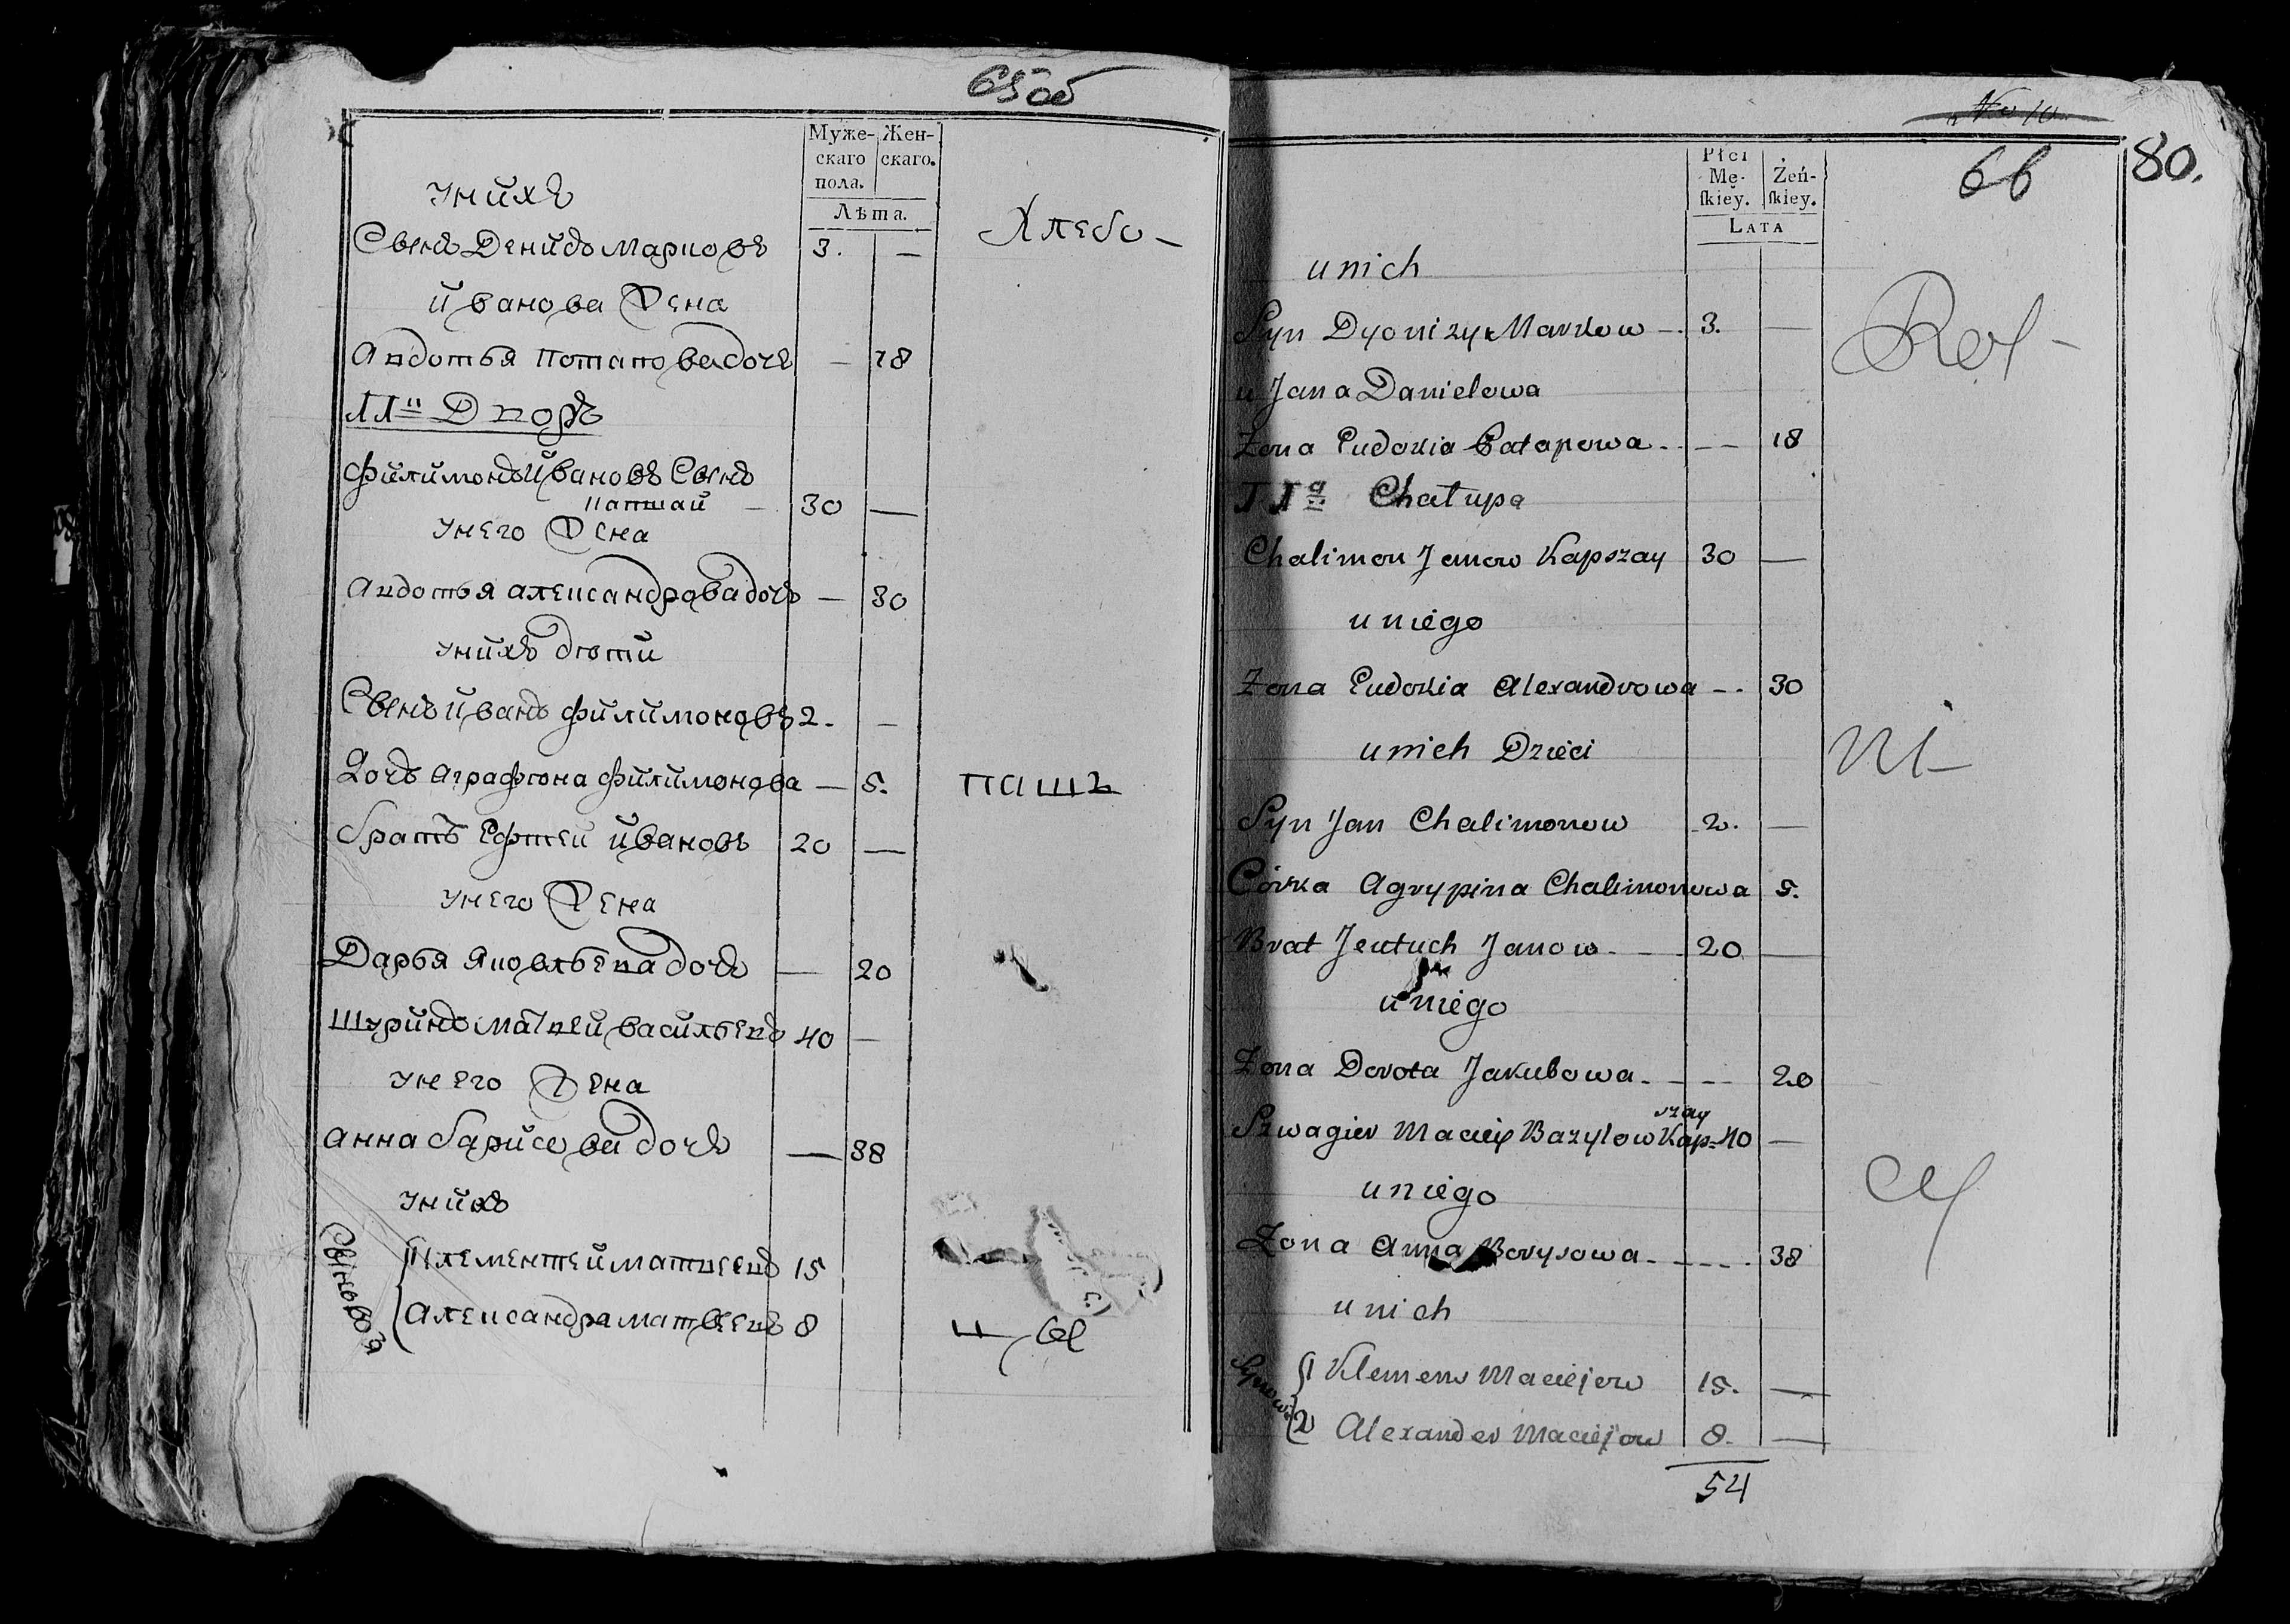 65 об
Муже-
скаго
пола.
Жен-
скаго.
Лѣта.
Унихъ
Хлебо -
Сынъ Денидъ Марковъ 3. —
Иванова Жена
Авдотья Потаповадочь — 18
Дворъ
Филимонъ Ивановъ Сынъ
Капшай — 30 —
Унего Жена
Авдотья Александровадочь — 30
Унихъ дѣти
Сынъ Иванъ Филимоновъ 2. —
Дочь Аграфѣна Филимонова — 5.
пашъ
братъ Ефтей Ивановъ 20 —
Унего Жена
Дарья Яковльевадочь — 20
Шуринъ Матвей Васильевъ 40 —
Унего Жена
Анна Барисовадочь — 38
Унихъ
Сыновья
Клементей Матвеевъ 15
Александра Матвеевъ 8
No 10
66
80.
Płci
Mę-
ſkiey.
Żeń-
ſkiey.
LATA
unich
Syn Dyonizy Markow — 3. —
u Jana Danielowa
Żona Eudokia Patapowa - - — 18
Chałupa
Chalimon Janow Kapszay 30 —
uniego
Żona Eudokia Alexandrowa - - 30
unich Dzieci
Syn Jan Chalimonow 2. —
Córka Agrypina Chalimonowa 5.
Brat Jeutuch Janow - - - 20 —
uniego
Żona Dorota Jakubowa - - - - 20
Szwagier Maciey Bazylow Kap=szay 40 —
uniego
Żona Anna Borysowa - - - - 38
unich
Synowie
1 Klemens Maciejow 15. —
2 Alexander Maciejow 8. —
54